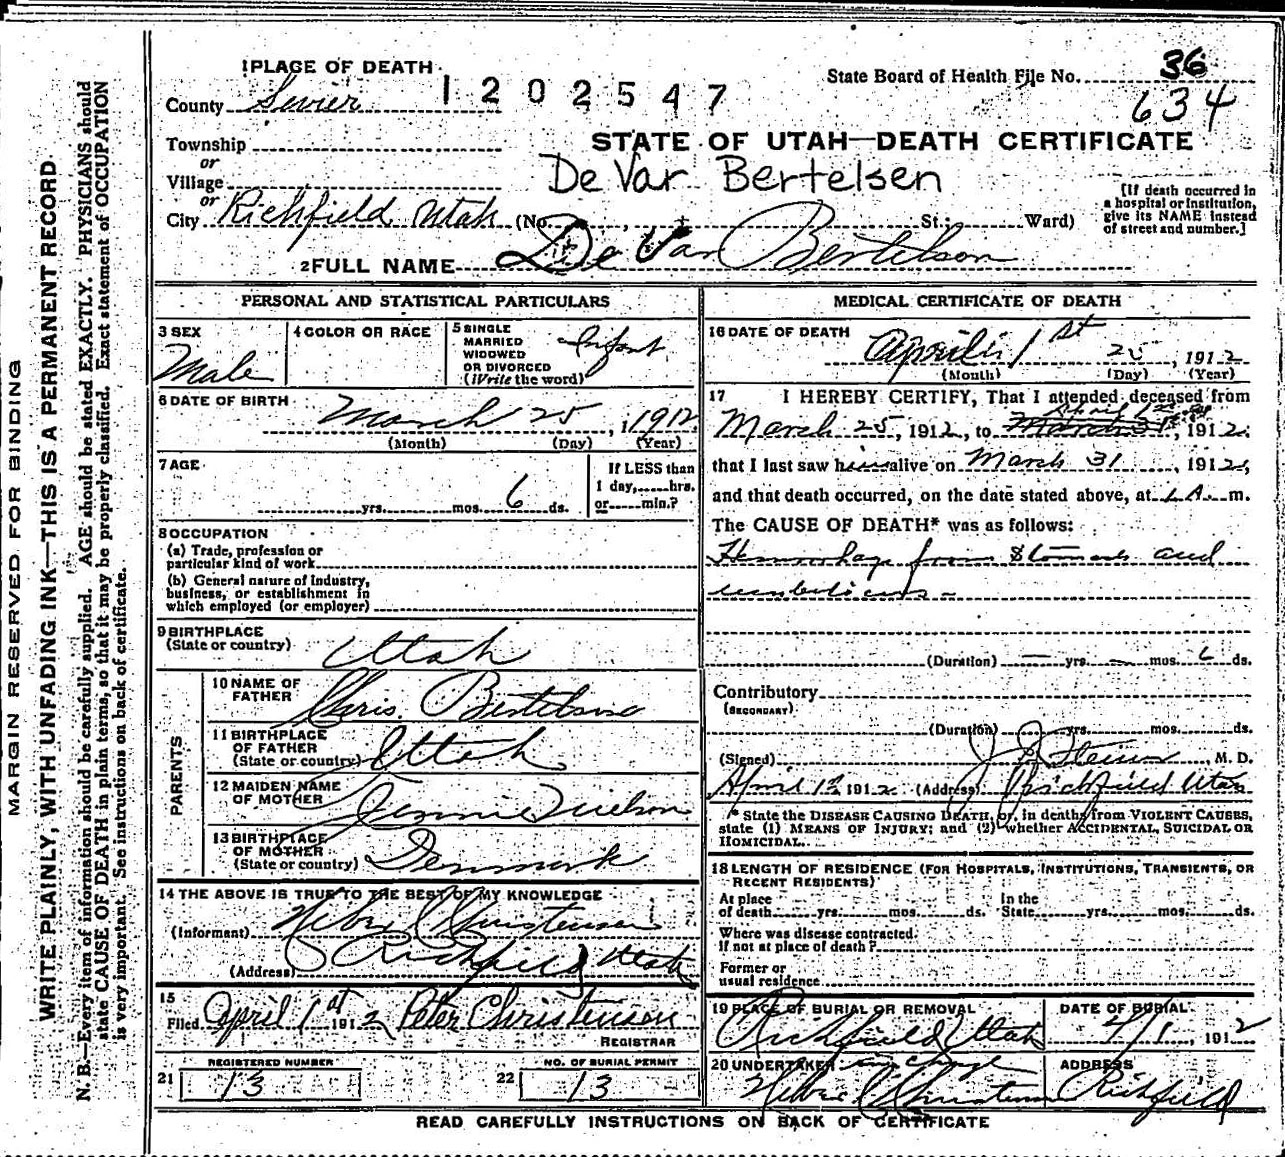 1 PLACE OF DEATH
State Board of Health File No. 36
County Sevier
1 2 0 2 5 4 7
634
Township
or
STATE OF UTAH—DEATH CERTIFICATE
Village
De Var Bertelsen
or
City Richfield Utah (No. , St.; Ward)
[If death occurred in
a hospital or institution,
give its NAME instead
of street and number.]
2 FULL NAME De Var Bertelson
PERSONAL AND STATISTICAL PARTICULARS
3 SEX
Male
4 COLOR OR RACE
5 SINGLE
MARRIED
WIDOWED
OR DIVORCED
(Write the word)
Infant
6 DATE OF BIRTH
March 25, 1912
(Month) (Day) (Year)
7 AGE
yrs. mos. 6 ds.
If LESS than
1 day, hrs.
or min.?
8 OCCUPATION
(a) Trade, profession or
particular kind of work
(b) General nature of industry,
business, or establishment in
which employed (or employer)
9 BIRTHPLACE
(State or country)
Utah
PARENTS
10 NAME OF
FATHER
Chris. Bertelsen
11 BIRTHPLACE
OF FATHER
(State or country)
Utah
12 MAIDEN NAME
OF MOTHER
Jennie Nielson
13 BIRTHPLACE
OF MOTHER
(State or country)
Denmark
14 THE ABOVE IS TRUE TO THE BEST OF MY KNOWLEDGE
(Informant) Christensen
(Address) Richfield Utah
15
Filed April 1st 1912 Peter Christenson
REGISTRAR
REGISTERED NUMBER
21 13
NO. OF BURIAL PERMIT
22 13
MEDICAL CERTIFICATE OF DEATH
16 DATE OF DEATH
April 1st 25, 1912
(Month) (Day) (Year)
17 I HEREBY CERTIFY, That I attended deceased from
April 1st
March 25, 1912, to March 31st, 1912,
that I last saw him alive on March 31, 1912,
and that death occurred, on the date stated above, at 1 A. m.
The CAUSE OF DEATH* was as follows:
Hemorrhage from Stomach and
umbilicus
(Duration) — yrs. — mos. 6 ds.
Contributory
(SECONDARY)
(Duration) yrs. mos. ds.
(Signed) J. J. Steiner M. D.
April 1st 1912 (Address) Richfield Utah
* State the DISEASE CAUSING DEATH, or, in deaths from VIOLENT CAUSES,
state (1) MEANS OF INJURY; and (2) whether ACCIDENTAL, SUICIDAL OR
HOMICIDAL.
18 LENGTH OF RESIDENCE (FOR HOSPITALS, INSTITUTIONS, TRANSIENTS, OR
RECENT RESIDENTS)
At place
of death yrs. mos. ds.
In the
State yrs. mos. ds.
Where was disease contracted
if not at place of death?
Former or
usual residence
19 PLACE OF BURIAL OR REMOVAL
Richfield Utah
DATE OF BURIAL
4/1, 1912
20 UNDERTAKER in charge
Christensen
ADDRESS
Richfield
READ CAREFULLY INSTRUCTIONS ON BACK OF CERTIFICATE
MARGIN RESERVED FOR BINDING
WRITE PLAINLY, WITH UNFADING INK—THIS IS A PERMANENT RECORD
N. B.—Every item of information should be carefully supplied. AGE should be stated EXACTLY. PHYSICIANS should
state CAUSE OF DEATH in plain terms, so that it may be properly classified. Exact statement of OCCUPATION
is very important. See instructions on back of certificate.